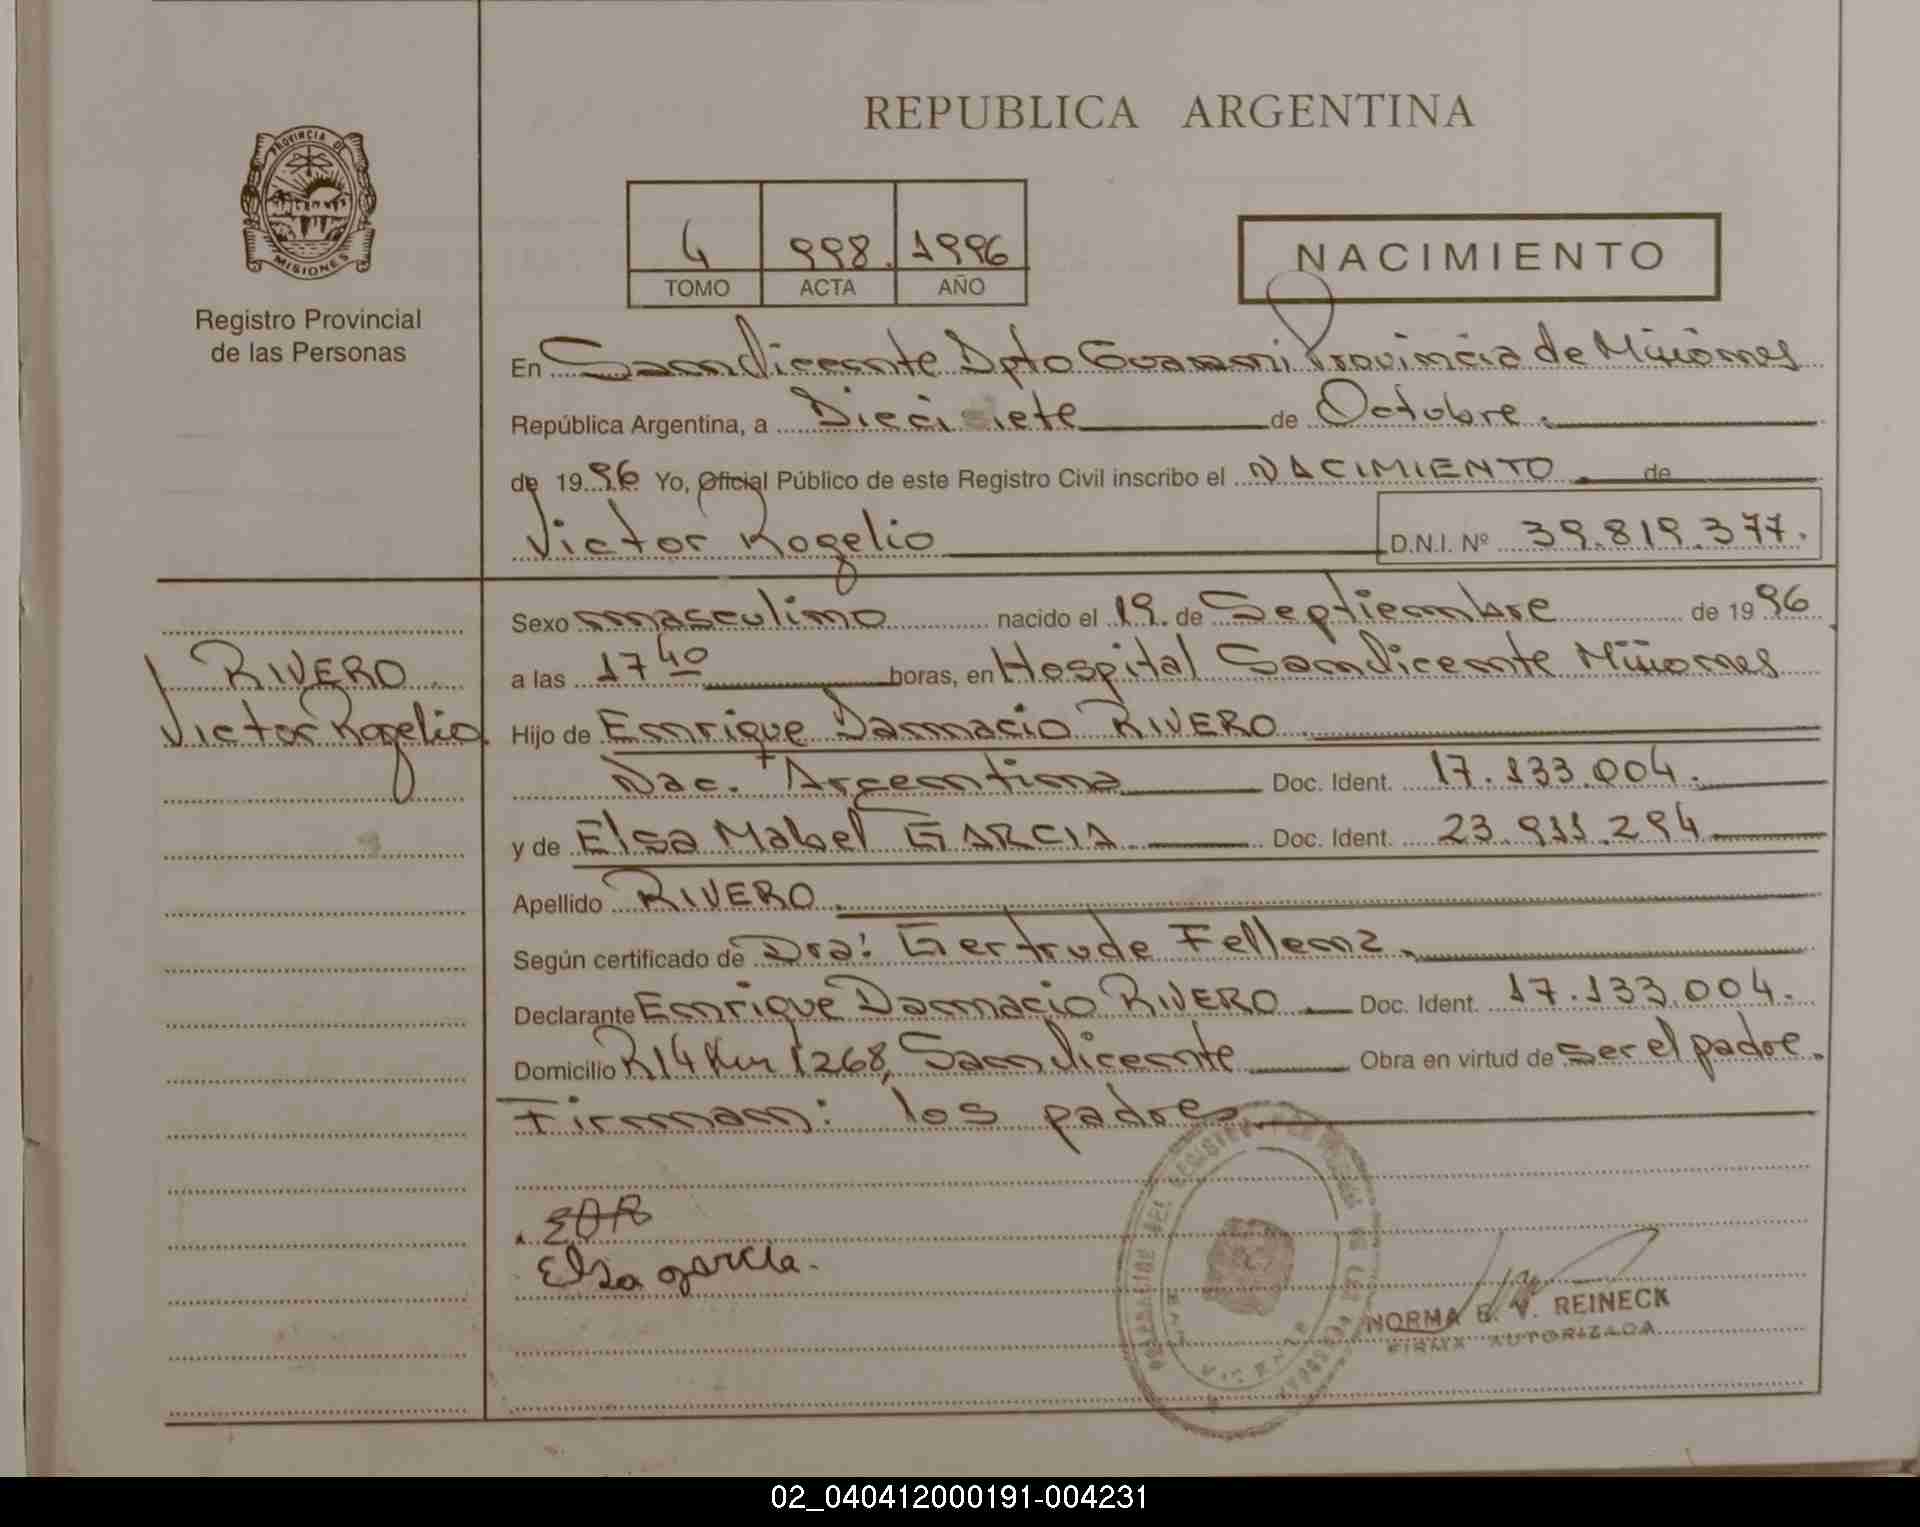 REPUBLICA ARGENTINA
PROVINCIA DE
MISIONES
Registro Provincial
de las Personas
4 998. 1996
TOMO ACTA AÑO
NACIMIENTO
En San Vicente Dpto Guarani Provincia de Misiones
República Argentina, a Diecisiete de Octubre.
de 1996 Yo, Oficial Público de este Registro Civil inscribo el NACIMIENTO. de
Victor Rogelio D.N.I. Nº 39.819.377.
RIVERO.
Victor Rogelio.
Sexo masculino nacido el 19. de Septiembre de 1996
a las 17 40 horas, en Hospital San Vicente Misiones
Hijo de Enrique Damacio RIVERO
Nac. Argentina Doc. Ident. 17.133.004.
y de Elsa Mabel GARCIA Doc. Ident. 23.911.294
Apellido RIVERO.
Según certificado de Dra: Gertrude Fellenz.
Declarante Enrique Damacio RIVERO Doc. Ident. 17.133.004.
Domicilio R14 Km 1268, San Vicente Obra en virtud de ser el padre.
Firman: los padres
EDR
Elsa garcia.
NORMA E. V. REINECK
FIRMA AUTORIZADA
02_040412000191-004231